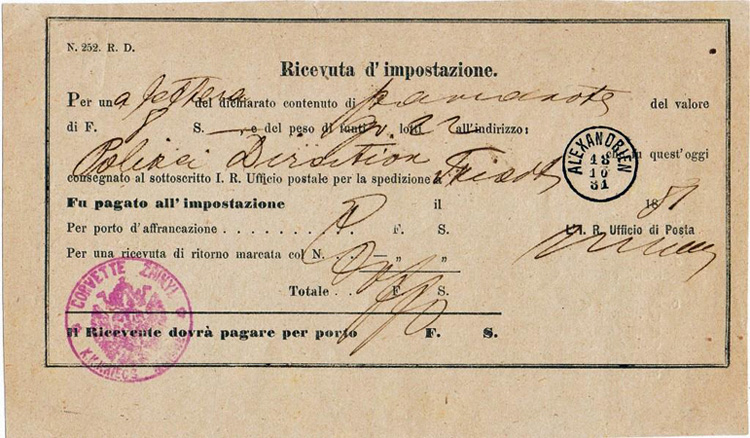 N. 252. R. D.
Ricevuta d'impostazione.
Per una lettera del dichiarato contenuto di del valore
di F. S. — e del peso di funti lotti all'indirizzo:
Polizei Direction Triest quest'oggi
consegnato al sottoscritto I. R. Ufficio postale per la spedizione
ALEXANDRIEN
18
10
81
Fu pagato all'impostazione il 1881
Per porto d'affrancazione . . . . . . . . F. S. I. R. Ufficio di Posta
Per una ricevuta di ritorno marcata col N. — „ „
Totale . . F. S.
Il Ricevente dovrà pagare per porto F. S.
CORVETTE ZRINYI
K.K. KRIEGS